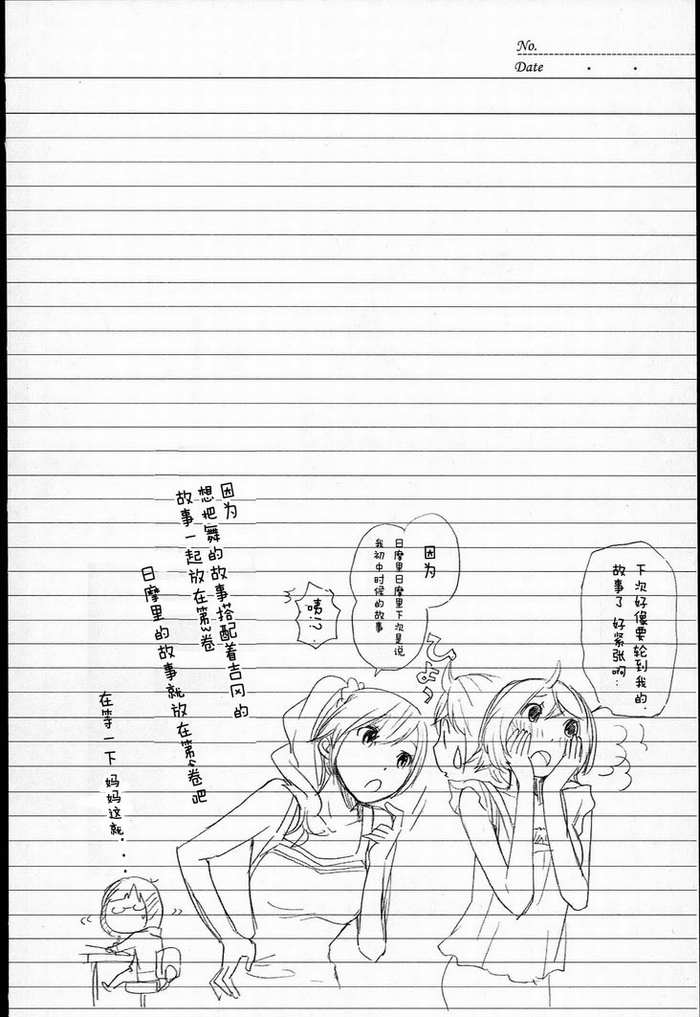 No.
Date
下次好像要轮到我的
故事了 好紧张啊…
因为
日摩里日摩里下次是说
我初中时候的故事
ひょっ
咦!?
因为
想把舞的故事搭配着吉冈的
故事一起放在第2卷
日摩里的故事就放在第2卷吧
在等一下 妈妈这就...